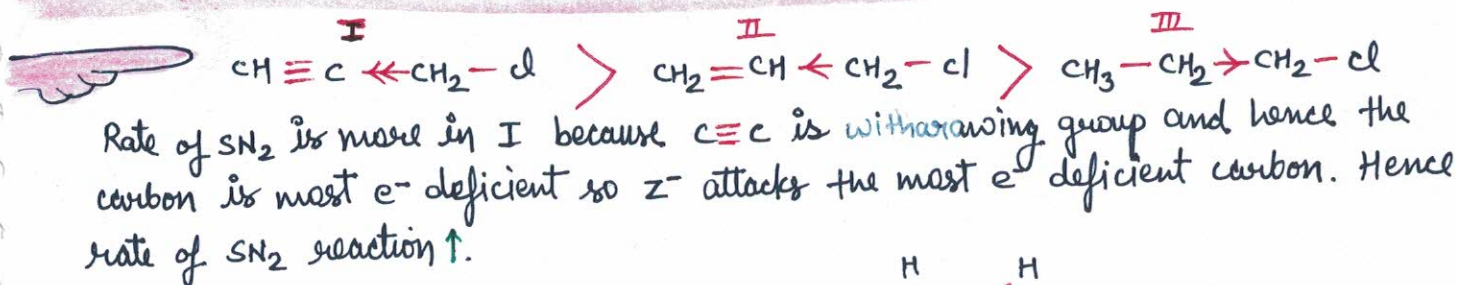 I II III
CH ≡ C ↞ CH₂ — Cl > CH₂ = CH ← CH₂ — Cl > CH₃ — CH₂ → CH₂ — Cl
Rate of SN₂ is more in I because C≡C is witharawing group and hence the
carbon is most e⁻ deficient so Z⁻ attacks the most e⁻ deficient carbon. Hence
rate of SN₂ reaction ↑.
H H